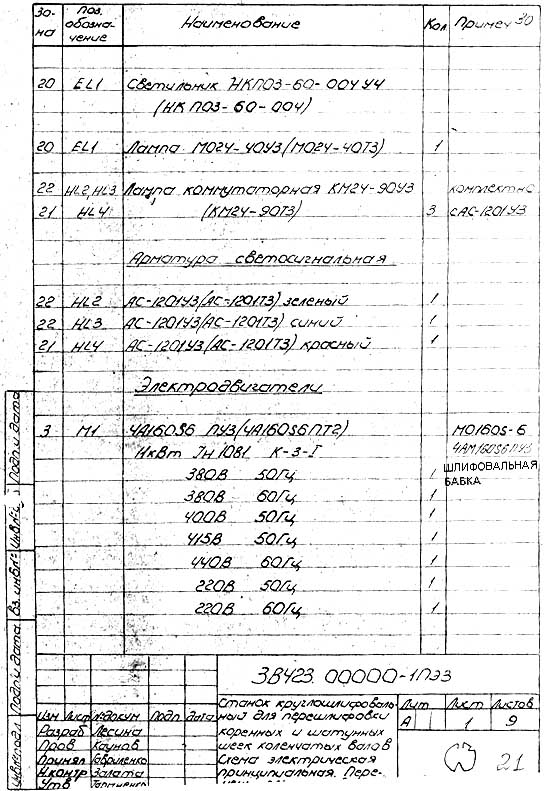 Зона Поз. обозначение Наименование Кол Примеч 30
20 EL1 Светильник НКП03-60-004У4
(НКП03-60-004)
20 EL1 Лампа МО24-40У3(МО24-40Т3) 1
22 HL2, HL3 Лампа коммутаторная КМ24-90У3 комплектно
21 HL4 (КМ24-90Т3) 3 с АС-1201У3
Арматура светосигнальная
22 HL2 АС-1201У3(АС-1201Т3) зеленый 1
22 HL3 АС-1201У3(АС-1201Т3) синий 1
21 HL4 АС-1201У3(АС-1201Т3) красный 1
Электродвигатели
3 М1 4А160S6 ПУ3(4А160S6ПТ2) МО160S-6
11кВт Iн1081 К-3-I 4АМ160S6ПУ3
380В 50Гц 1 ШЛИФОВАЛЬНАЯ БАБКА
380В 60Гц 1
400В 50Гц 1
415В 50Гц 1
440В 60Гц 1
220В 50Гц 1
220В 60Гц 1
3В423.00000-1ПЭ3
Изм Лист №докум Подп Дата
Разраб Лесина
Пров Каунов
Принял Гавриленко
Н.контр Залата
Утв
Станок круглошлифоваль-
ный для перешлифовки
коренных и шатунных
шеек коленчатых валов
Схема электрическая
принципиальная. Пере-
Лит Лист Листов
А 1 9
21
Подп и дата
Вз. инв№
Подп и дата
Инв№подл